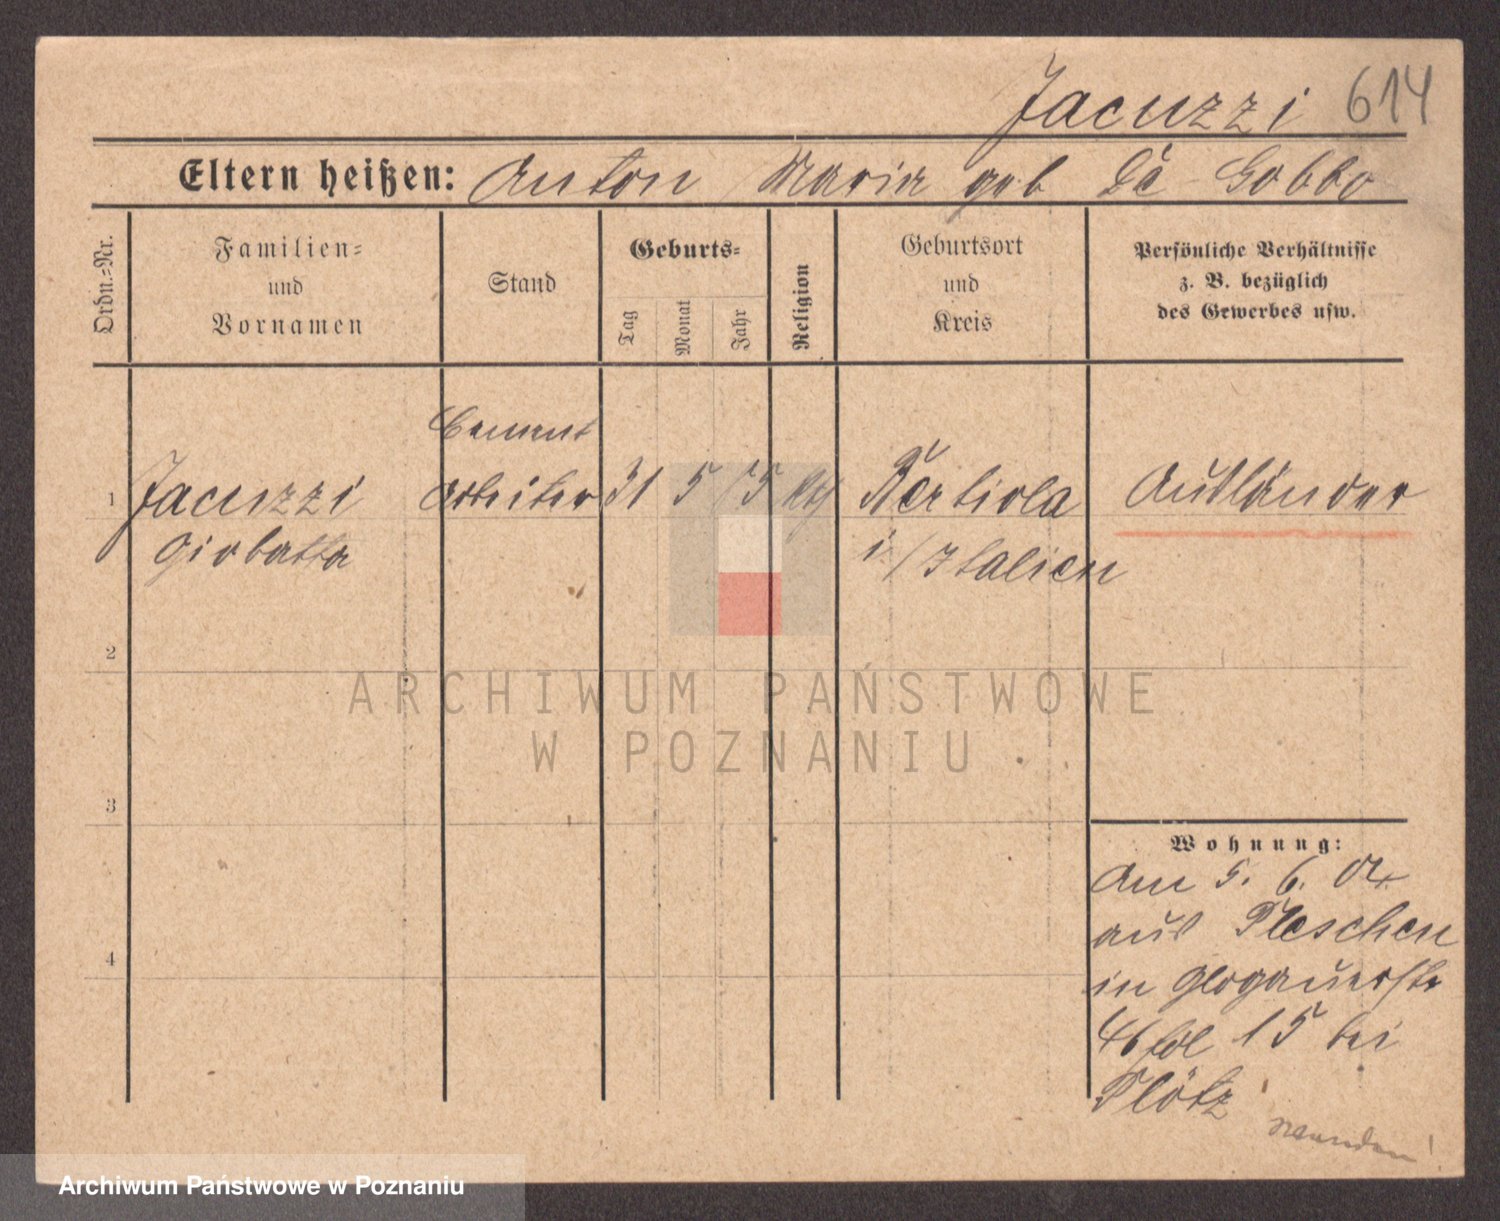 Jacuzzi 614
Eltern heißen: Anton Maria geb De Gobbo
Ordn.-Nr.
Familien-
und
Vornamen
Stand
Geburts-
Tag
Monat
Jahr
Religion
Geburtsort
und
Kreis
Persönliche Verhältnisse
z. B. bezüglich
des Gewerbes usw.
Cement
1 Jacuzzi Arbeiter 31 5 75 Kth Bertiola Ausländer
Giobatta i/Italien
2
ARCHIWUM PAŃSTWOWE
W POZNANIU
3
Wohnung:
Am 5. 6. 04
aus Pleschen
4
in Glogauerstr
46 bei
Plötz
wenden!
Archiwum Państwowe w Poznaniu